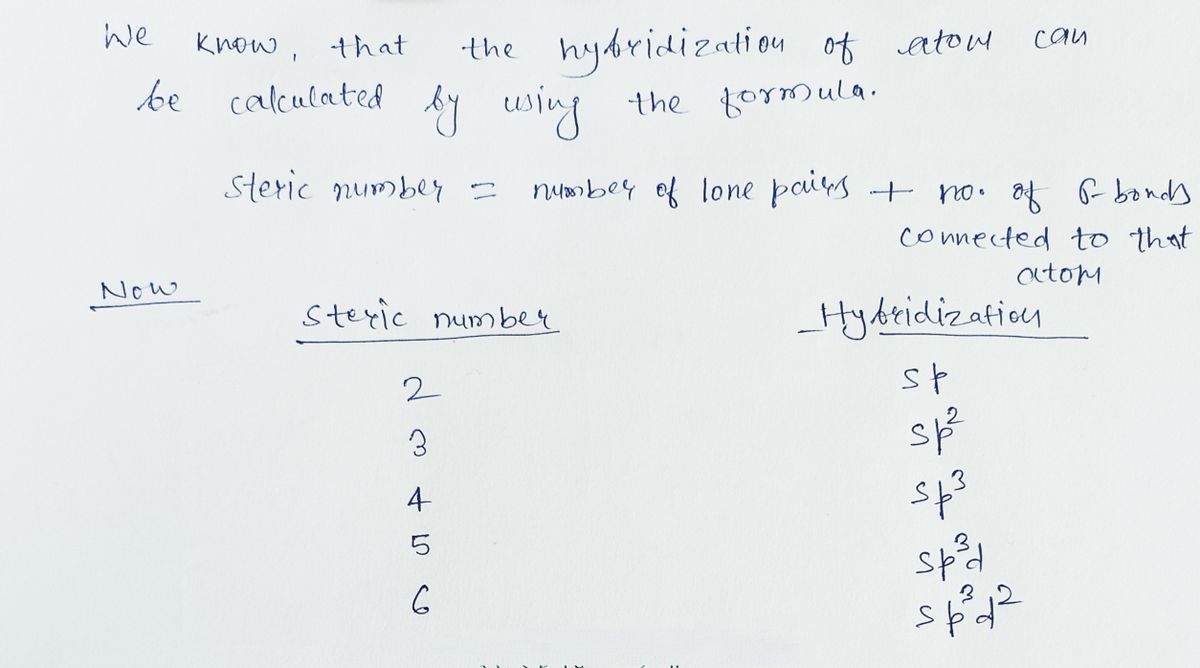 We know, that the hybridization of atom can
be calculated by using the formula.
Steric number = number of lone pairs + no. of σ-bonds
connected to that
atom
Now
Steric number Hybridization
2 sp
3 sp²
4 sp³
5 sp³d
6 sp³d²